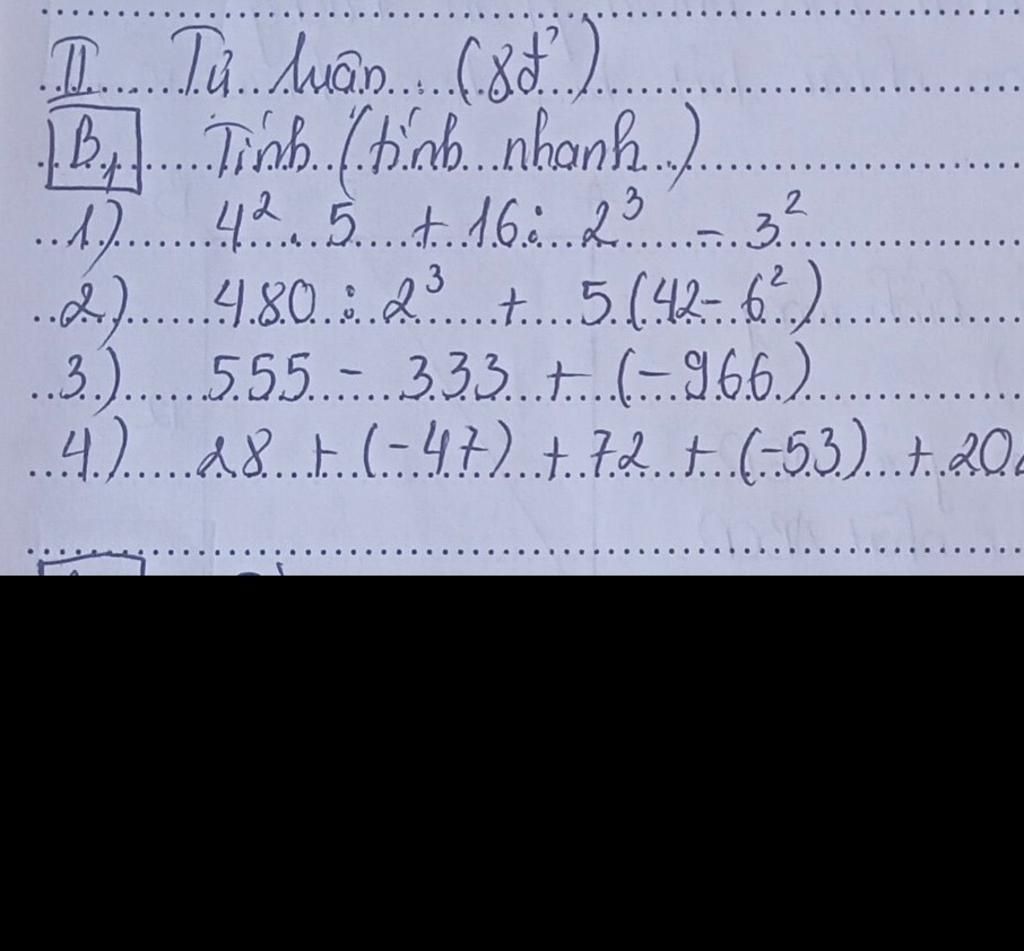 II Tự luận: (8đ')
B1 Tính (tính nhanh)
1) 4² . 5 + 16 : 2³ - 3²
2) 480 : 2³ + 5(42 - 6²)
3) 555 - 333 + (-966)
4) 28 + (-47) + 72 + (-53) + 20